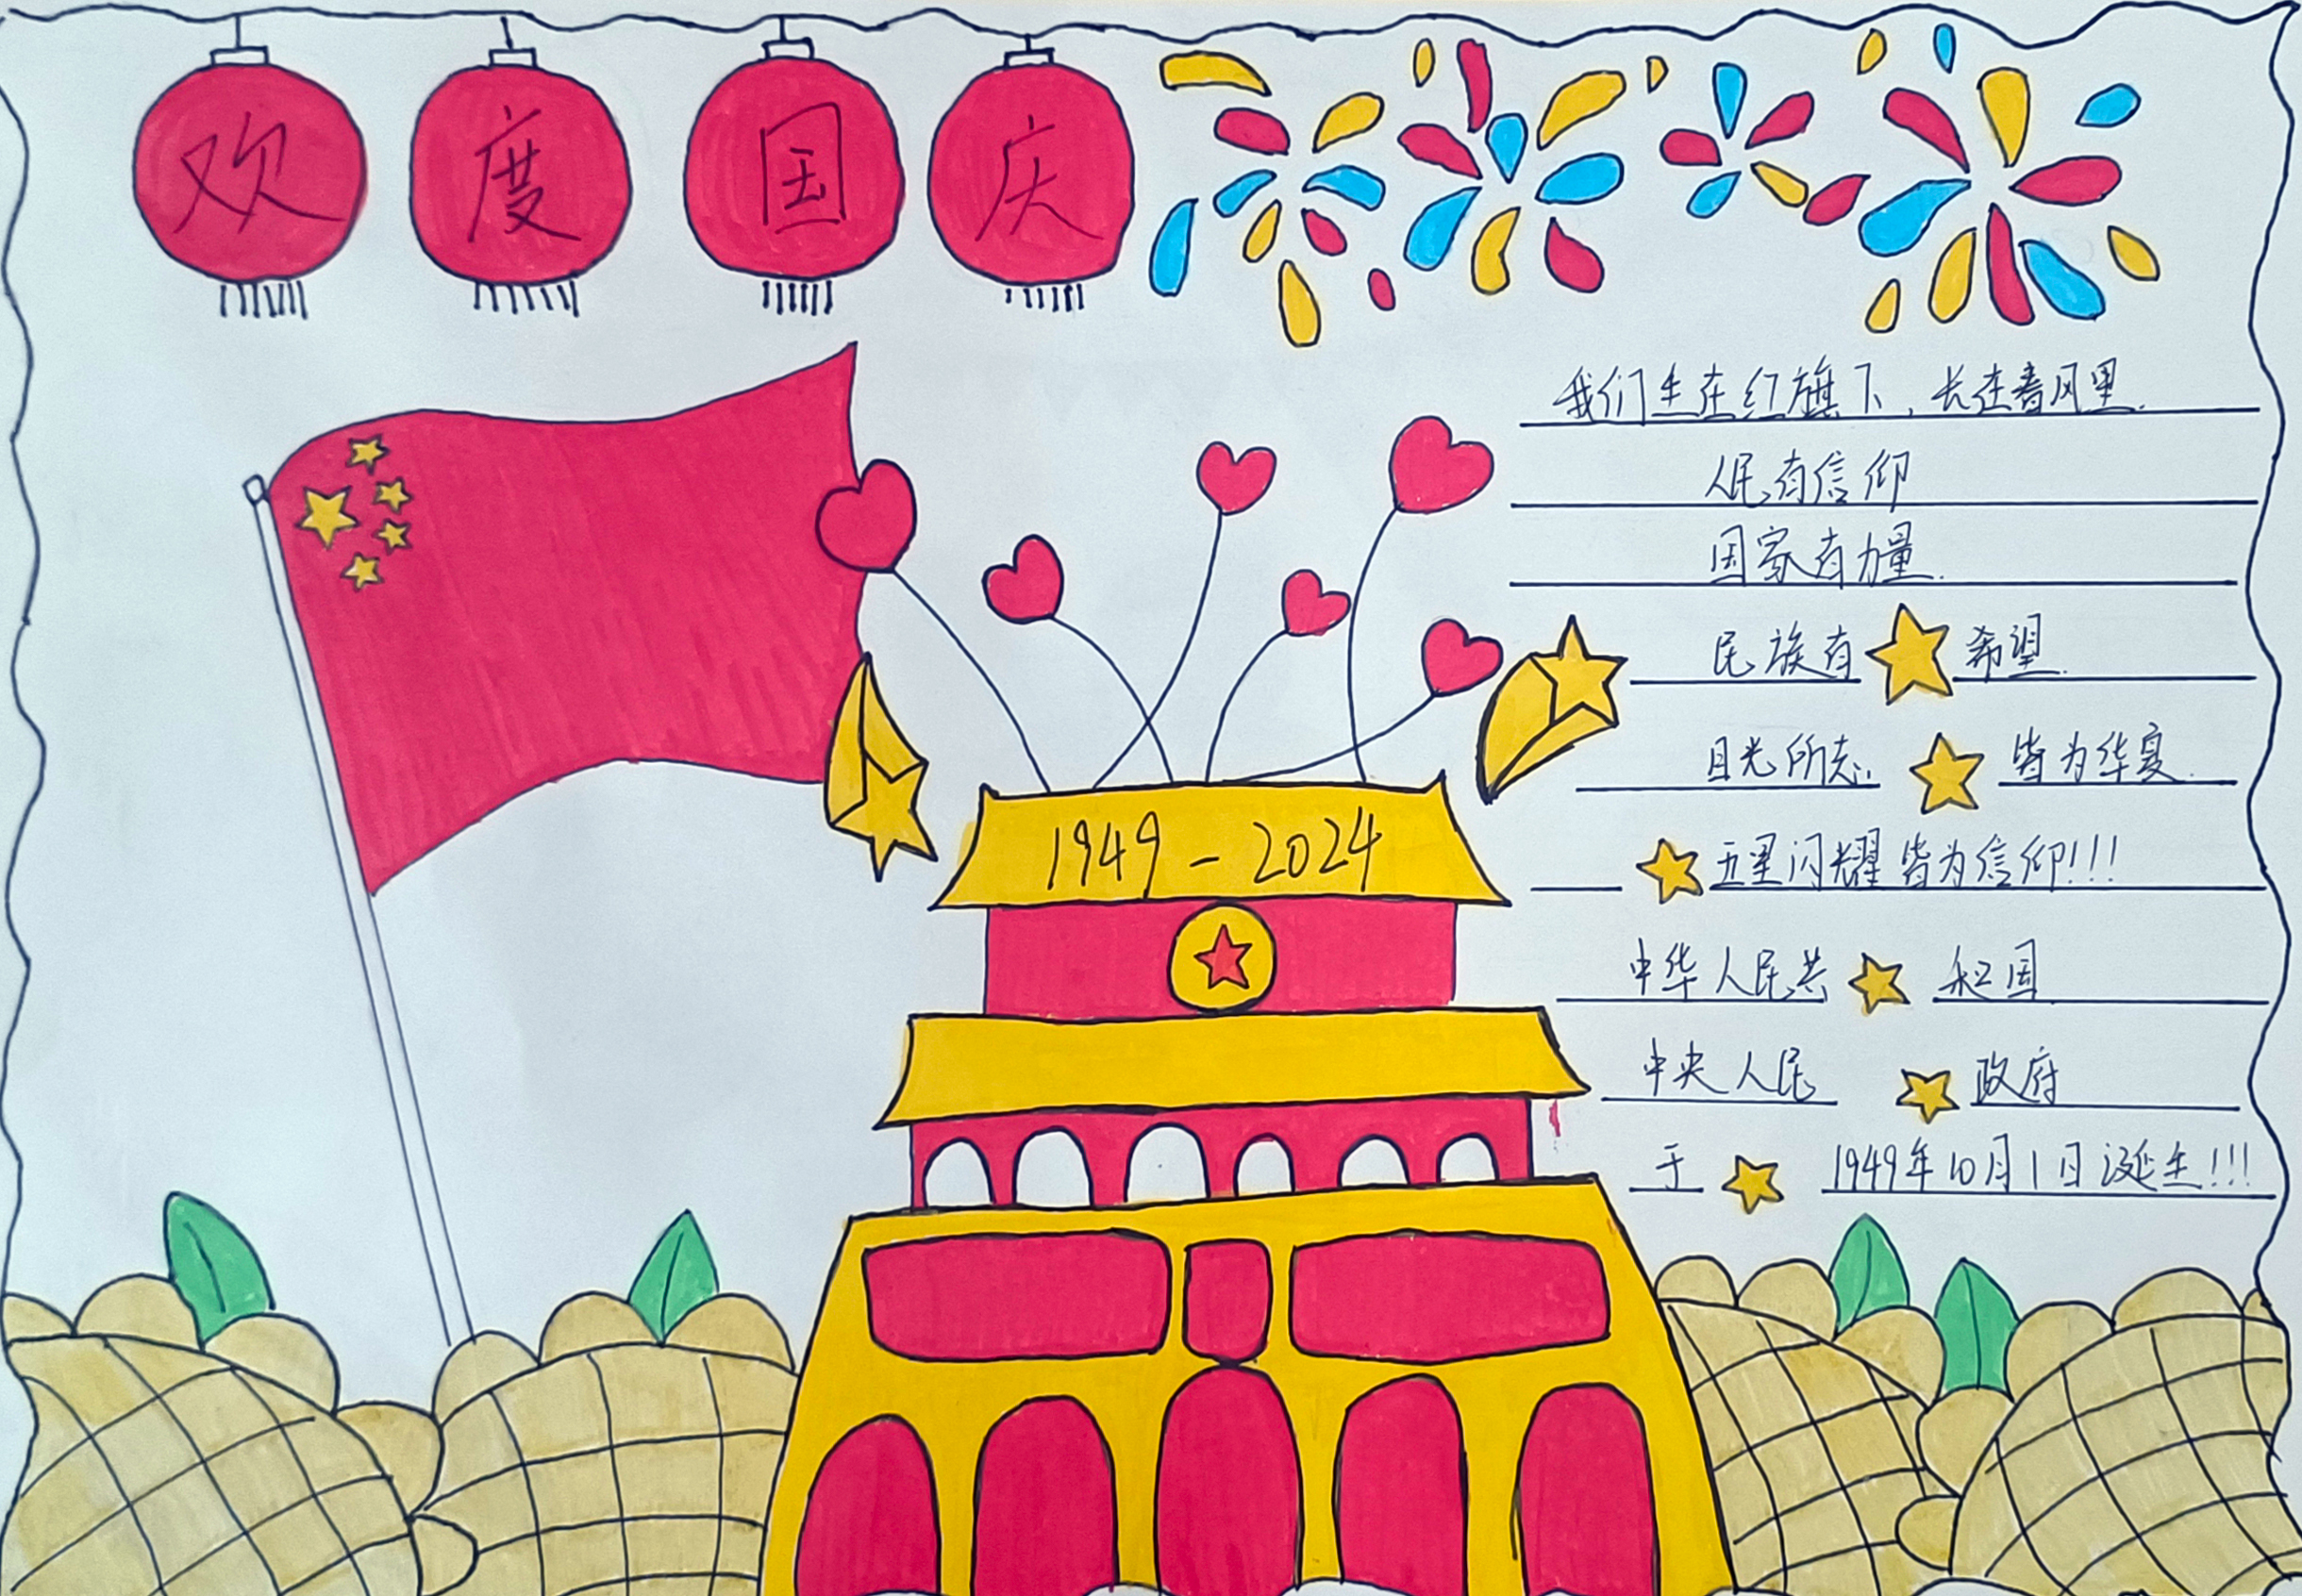 欢度国庆
我们生在红旗下,长在春风里.
人民有信仰
国家有力量.
民族有 希望.
目光所志, 皆为华夏.
五星闪耀皆为信仰!!!
中华人民共 和国
中央人民 政府
于 1949年10月1日诞生!!!
1949-2024